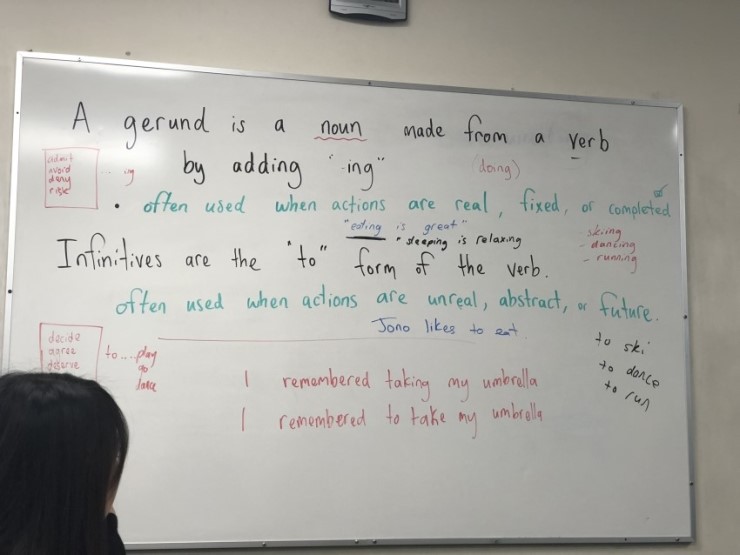 A gerund is a noun made from a verb
by adding "-ing" (doing)
admit
avoid
deny
... ing
• often used when actions are real, fixed, or completed
"eating is great"
"sleeping is relaxing
- skiing
- dancing
- running
Infinitives are the "to" form of the verb.
often used when actions are unreal, abstract, or future.
Jono likes to eat.
decide
agree
deserve
to ... play
go
dance
to ski
to dance
to run
I remembered taking my umbrella
I remembered to take my umbrella